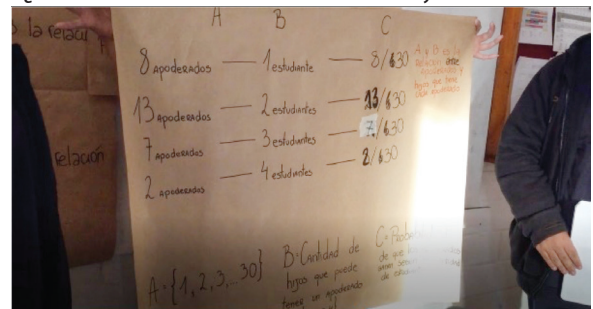 o la relaci
relación
A B C
8 apoderados — 1 estudiante — 8/30
13 apoderados — 2 estudiantes — 13/30
7 apoderados — 3 estudiantes — 7/30
2 apoderados — 4 estudiantes — 2/30
A y B es la
relación entre
apoderados y
hijos que tiene
cada
A={1, 2, 3, ...30}
B=Cantidad de
hijos que puede
tener un apoderado
C=
de que